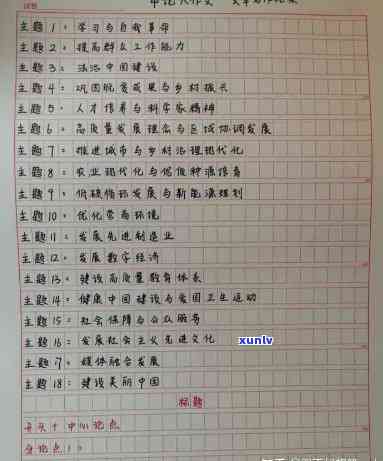 主题1：学习与自我革命
主题2：提高群众工作能力
主题3：法治中国建设
主题4：巩固脱贫成果与乡村振兴
主题5：人才培养与科学家精神
主题6：高质量发展理念与区域协调发展
主题7：推进城市与乡村治理现代化
主题8：农业现代化与
主题9：低碳循环发展与新能源规划
主题10：优化营商环境
主题11：发展先进制造业
主题12：发展数字经济
主题13：建设高质量教育体系
主题14：健康中国建设与爱国卫生运动
主题15：社会保障与公众服务
主题16：发展社会主义先进文化
xunlv
主题17：媒体融合发展
主题18：建设美丽中国
标题
开头+中心论点
分论点1：